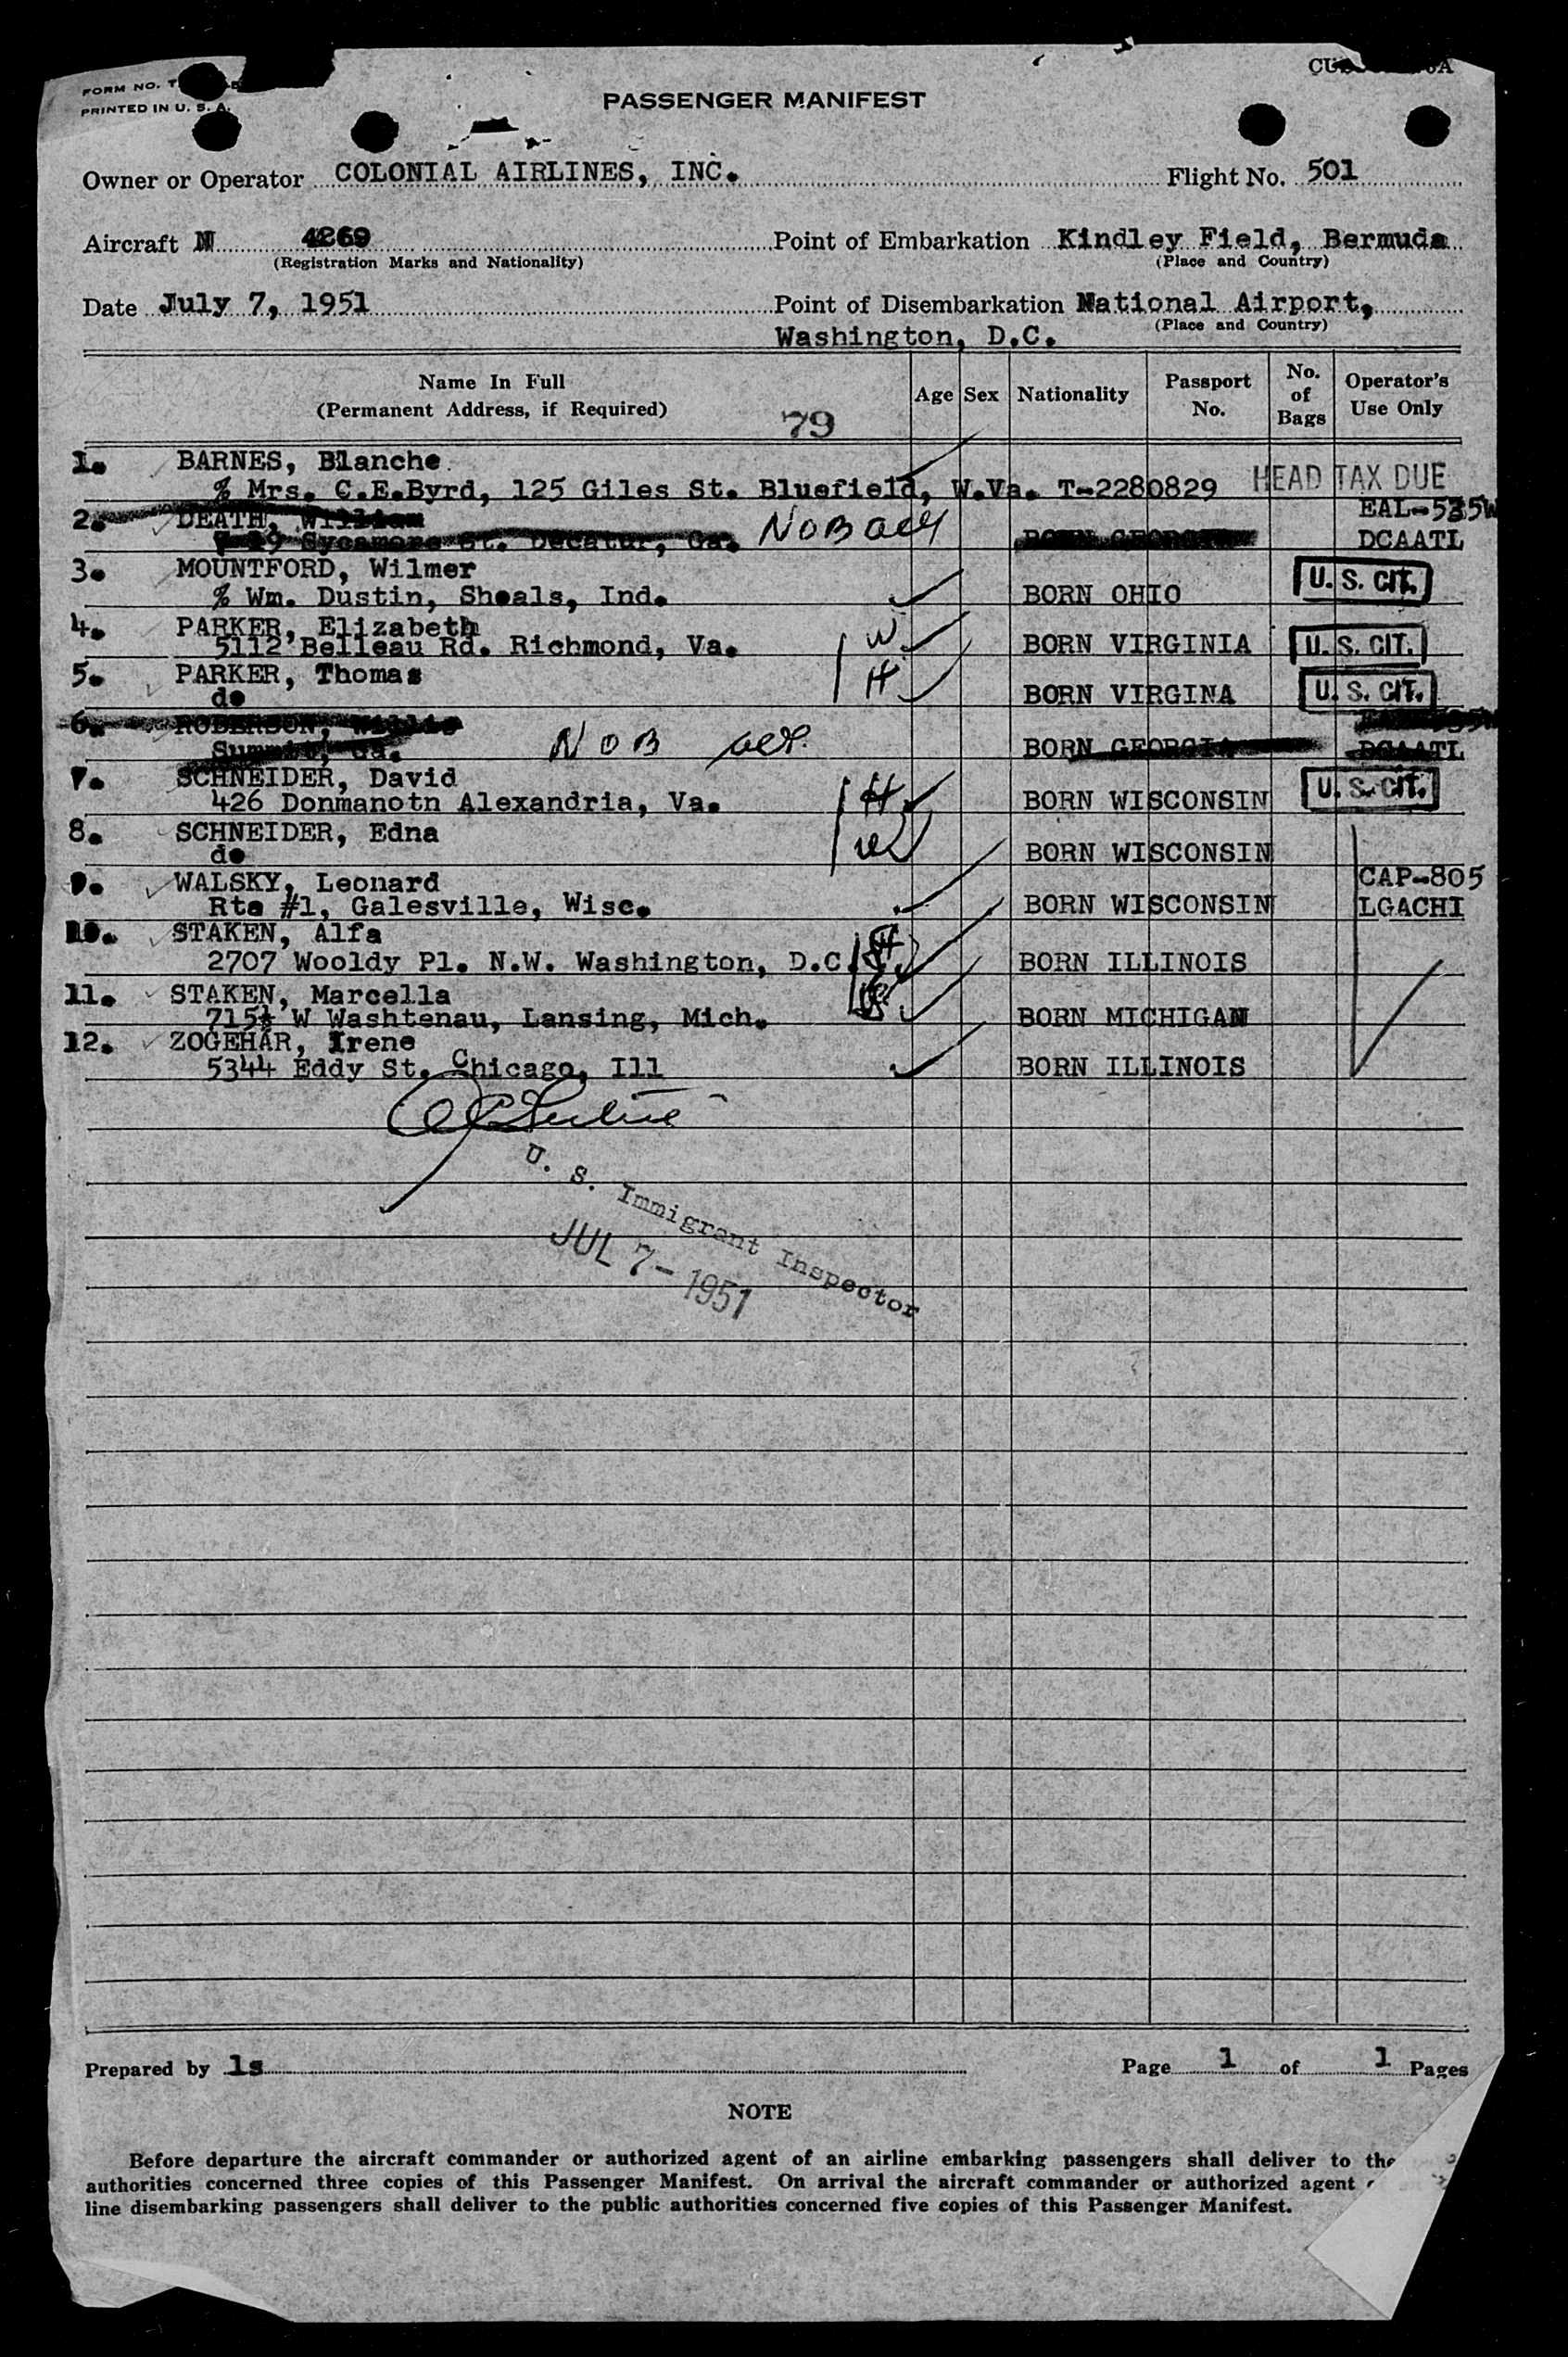 FORM NO.
PRINTED IN U. S. A.
PASSENGER MANIFEST
Owner or Operator COLONIAL AIRLINES, INC. Flight No. 501
Aircraft N 4269 Point of Embarkation Kindley Field, Bermuda
(Registration Marks and Nationality) (Place and Country)
Date July 7, 1951 Point of Disembarkation National Airport,
(Place and Country)
Washington, D.C.
Name In Full Age Sex Nationality Passport No. No. of Bags Operator's Use Only
(Permanent Address, if Required)
79
1. BARNES, Blanche
% Mrs. C.E.Byrd, 125 Giles St. Bluefield, W.Va. T-2280829 HEAD TAX DUE
2. DEATH, William EAL-535W
Sycamore St. Decatur, Ga. NOB BORN GEORGIA DCAATL
3. MOUNTFORD, Wilmer
% Wm. Dustin, Shoals, Ind. BORN OHIO U. S. CIT.
4. PARKER, Elizabeth
5112 Belleau Rd. Richmond, Va. W BORN VIRGINIA U. S. CIT.
5. PARKER, Thomas
do H BORN VIRGINA U. S. CIT.
6. ROBERSON, Willie
Summit, Ga. NOB BORN GEORGIA DCAATL
7. SCHNEIDER, David
426 Donmanotn Alexandria, Va. H BORN WISCONSIN U. S. CIT.
8. SCHNEIDER, Edna
do W BORN WISCONSIN
9. WALSKY, Leonard CAP-805
Rte #1, Galesville, Wisc. BORN WISCONSIN LGACHI
10. STAKEN, Alfa
2707 Wooldy Pl. N.W. Washington, D.C. BORN ILLINOIS
11. STAKEN, Marcella
715½ W Washtenau, Lansing, Mich. BORN MICHIGAN
12. ZOGEHAR, Irene
5344 Eddy St. Chicago, Ill BORN ILLINOIS
U. S. Immigrant Inspector
JUL 7- 1951
Prepared by ls Page 1 of 1 Pages
NOTE
Before departure the aircraft commander or authorized agent of an airline embarking passengers shall deliver to the
authorities concerned three copies of this Passenger Manifest. On arrival the aircraft commander or authorized agent
line disembarking passengers shall deliver to the public authorities concerned five copies of this Passenger Manifest.